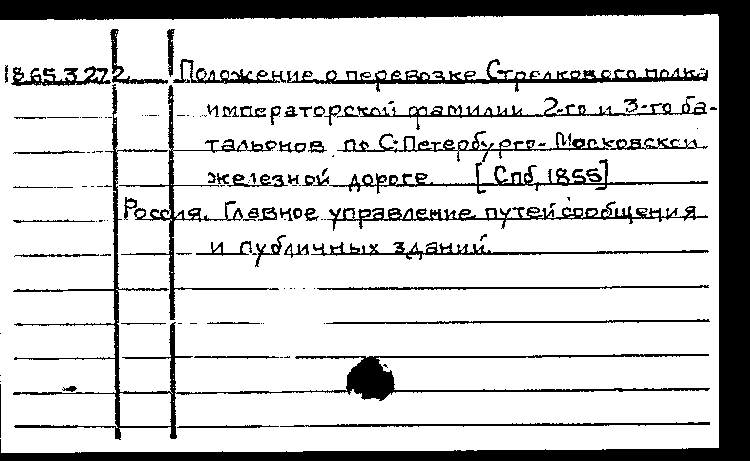 18 65.3.272. Положение о перевозке Стрелкового полка
императорской фамилии 2-го и 3-го ба-
тальонов по С.Петербурго-Московской
железной дороге. [Спб, 1855]
Россия. Главное управление путей сообщения
и публичных зданий.